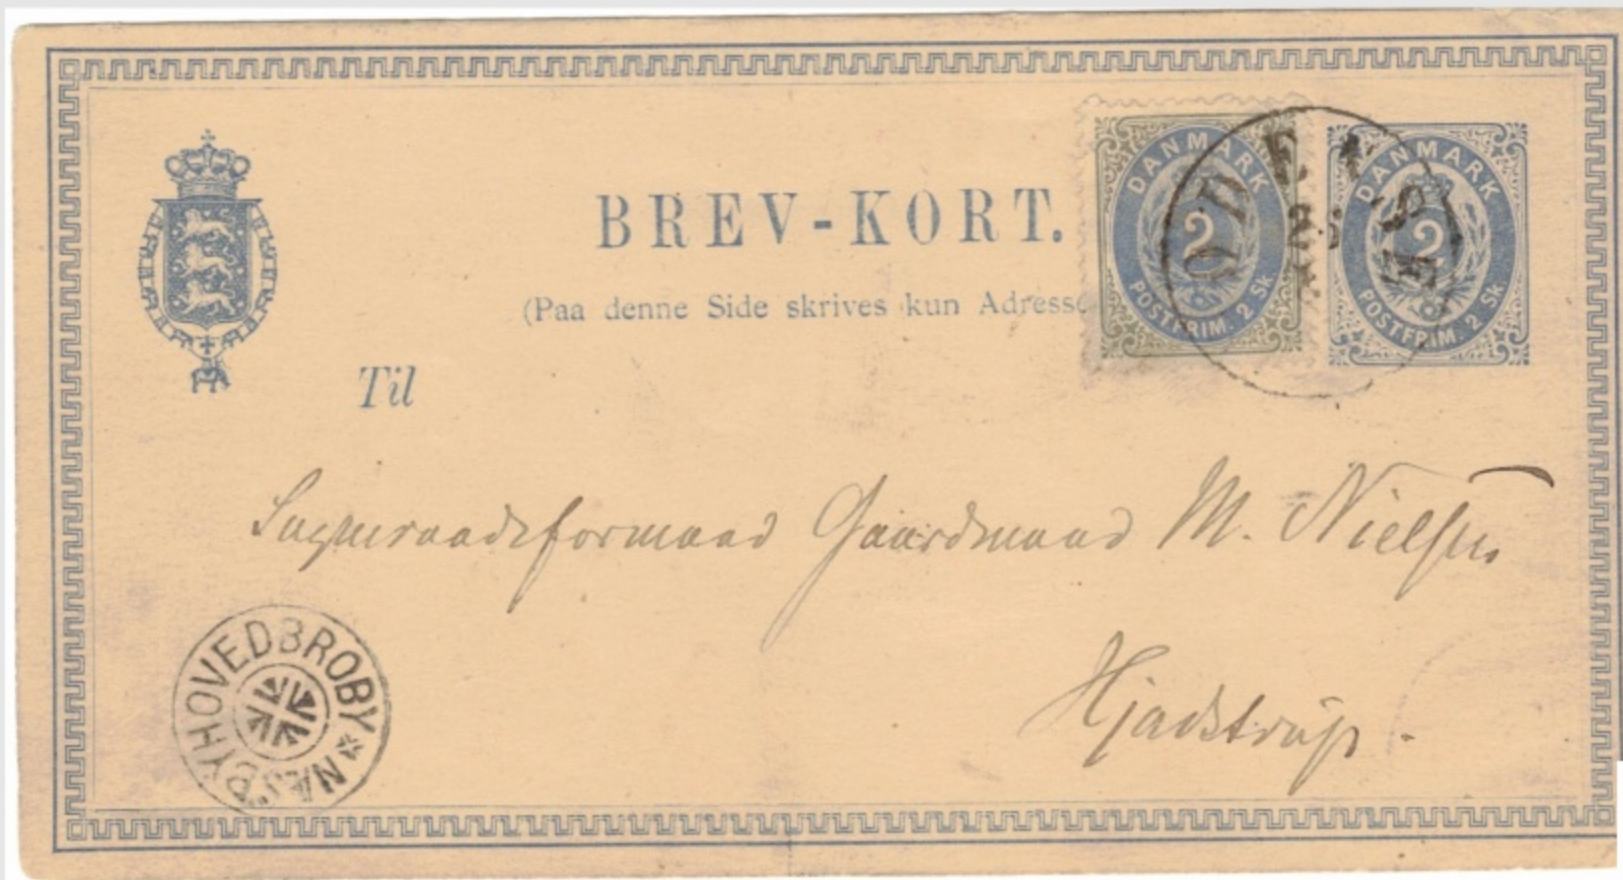 BREV-KORT.
(Paa denne Side skrives kun Adresse
Til
DANMARK
2
POSTFRIM. 2 Sk
DANMARK
2
POSTFRIM. 2 Sk
ODENSE
Sogneraadsformand Gaardmand M. Nielsen
Hjadstrup.
NÆSBYHOVEDBROBY